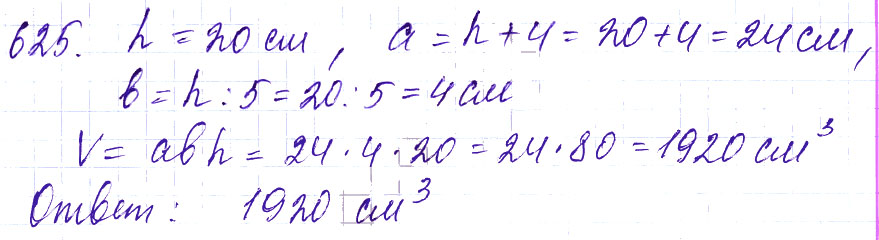 625. h = 20 см, a = h + 4 = 20 + 4 = 24 см,
в = h : 5 = 20 : 5 = 4 см
V = aвh = 24 · 4 · 20 = 24 · 80 = 1920 см³
Ответ: 1920 см³